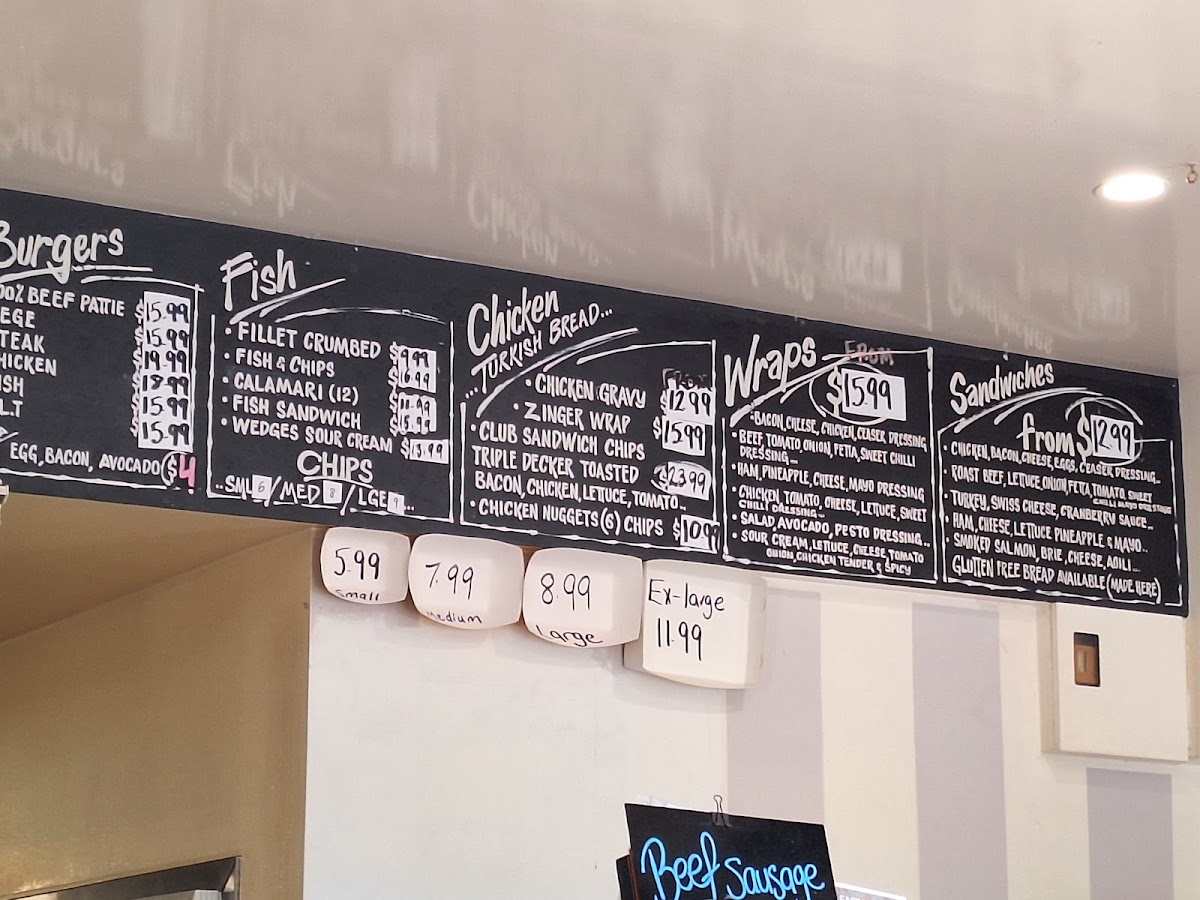 Burgers
00% BEEF PATTIE $15.99
EGE 15.99
TEAK 19.99
HICKEN 18.99
ISH 15.99
L.T 15.99
EGG, BACON, AVOCADO $4
Fish
• FILLET CRUMBED $9.99
• FISH & CHIPS
• CALAMARI (12)
• FISH SANDWICH
• WEDGES SOUR CREAM $13.99
CHIPS
..SML 6/MED 8/LGE 9...
Chicken
...TURKISH BREAD...
FROM
• CHICKEN GRAVY $12.99
• ZINGER WRAP $15.99
• CLUB SANDWICH CHIPS
TRIPLE DECKER TOASTED $23.99
BACON, CHICKEN, LETUCE, TOMATO..
• CHICKEN NUGGETS (6) CHIPS $10.99
Wraps FROM
$15.99
• BACON, CHEESE, CHICKEN, CEASER DRESSING
• BEEF, TOMATO, ONION, FETTA, SWEET CHILLI
DRESSING...
• HAM, PINEAPPLE, CHEESE, MAYO DRESSING
• CHICKEN, TOMATO, CHEESE, LETTUCE, SWEET
CHILLI DRESSING...
• SALAD, AVOCADO, PESTO DRESSING..
• SOUR CREAM, LETTUCE, CHEESE, TOMATO
ONION, CHICKEN TENDER & SPICY
Sandwiches
from $12.99
• CHICKEN, BACON, CHEESE, EGGS, CEASER DRESSING...
• ROAST BEEF, LETTUCE, ONION, FETTA, TOMATO, SWEET
CHILLI MAYO DRESSING
• TURKEY, SWISS CHEESE, CRANBERRY SAUCE...
• HAM, CHEESE, LETTUCE PINEAPPLE & MAYO..
• SMOKED SALMON, BRIE, CHEESE, AOILI...
GLUTTEN FREE BREAD AVAILABLE (MADE HERE)
5.99
small
7.99
Medium
8.99
large
Ex-large
11.99
Beef Sausage